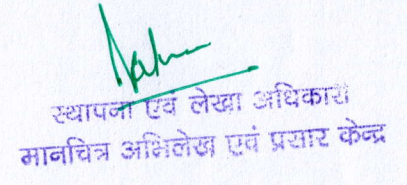 स्थापना एवं लेखा अधिकारी
मानचित्र अभिलेख एवं प्रसार केन्द्र